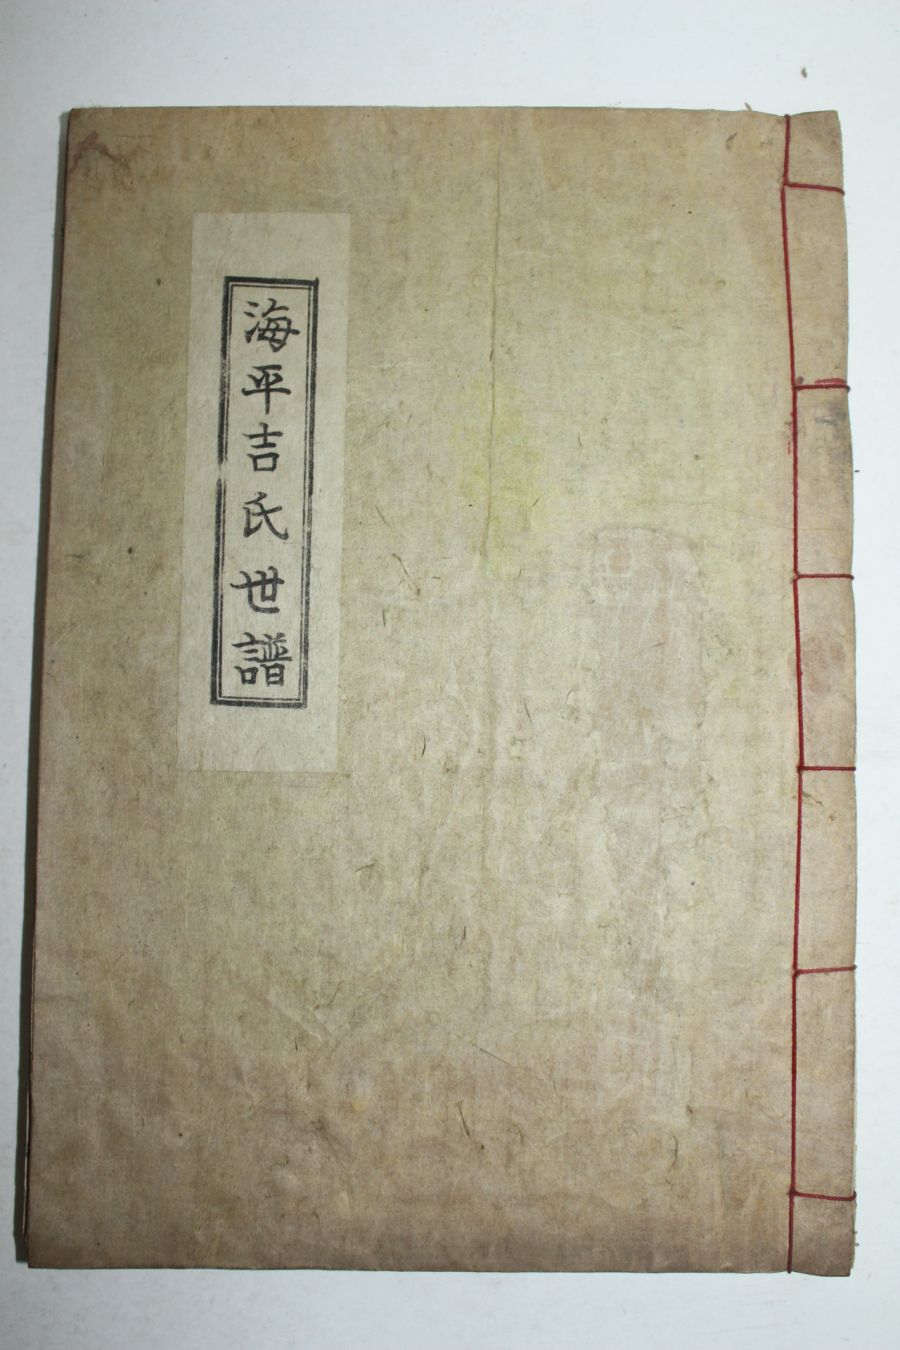 海平吉氏世譜